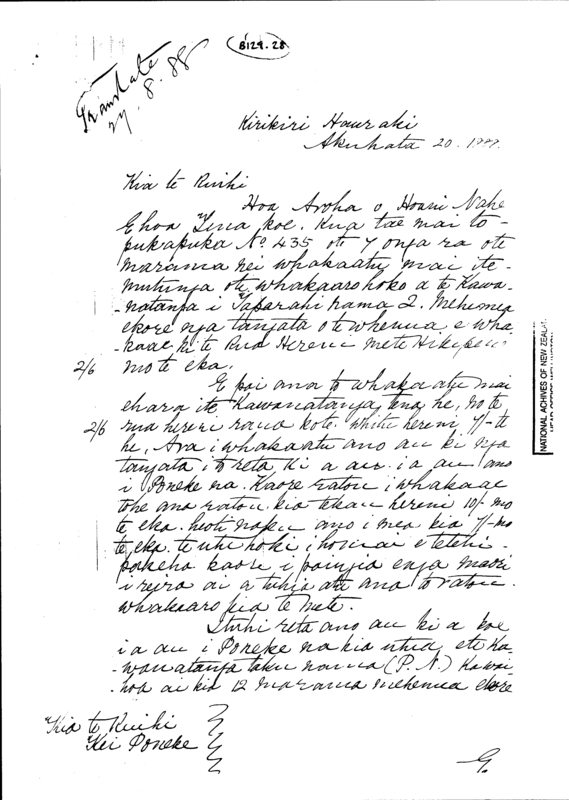 B129.28
Translate
27.8.88
Kirikiri Hauraki
Akuhata 20. 1888.
Kia te Ruihi
Hoa Aroha o Hoani Nahe
E hoa Tena koe. Kua tae mai to
pukapuka No 435 ote 7 onga ra ote
marama nei whakaatu mai ite-
mutunga ote whakaaro hoko a te Kawa-
-natanga i Taparahi nama 2. Mehemea
ekore nga tangata o te whenua e wha
kaae ki te Rua Hereni mete Hikipene
mo te eka.
2/6
E pai ana to whakaatu mai
ehara ite Kawanatanga tena he, no te
2/6
rua hereni raua kote whitu hereni 7/- te
he, Ara i whakaatu ano au ki nga
tangata i to reta ki a au i a au ano
i Poneke na. Kaore ratou i whakaae
tohe ana ratou kia tekau hereni 10/- mo
te eka. heoti naku ano i mea kia 7/- mo
te eka. te utu hoki i homai e tetehi-
pakeha kaore i paingia enga maori
i reira ai a tuhia atu ana to ratou
whakaaro kia te mete.
Ituhi reta ano au ki a koe
i a au i Poneke na kia utua ete Ka-
-wanatanga taku nama (P.N.)
hoa ai kia 12 marama mehemea ekore
Kia te Ruihi
Kei Poneke
NATIONAL ARCHIVES OF NEW ZEALAND
HEAD OFFICE WELLINGTON